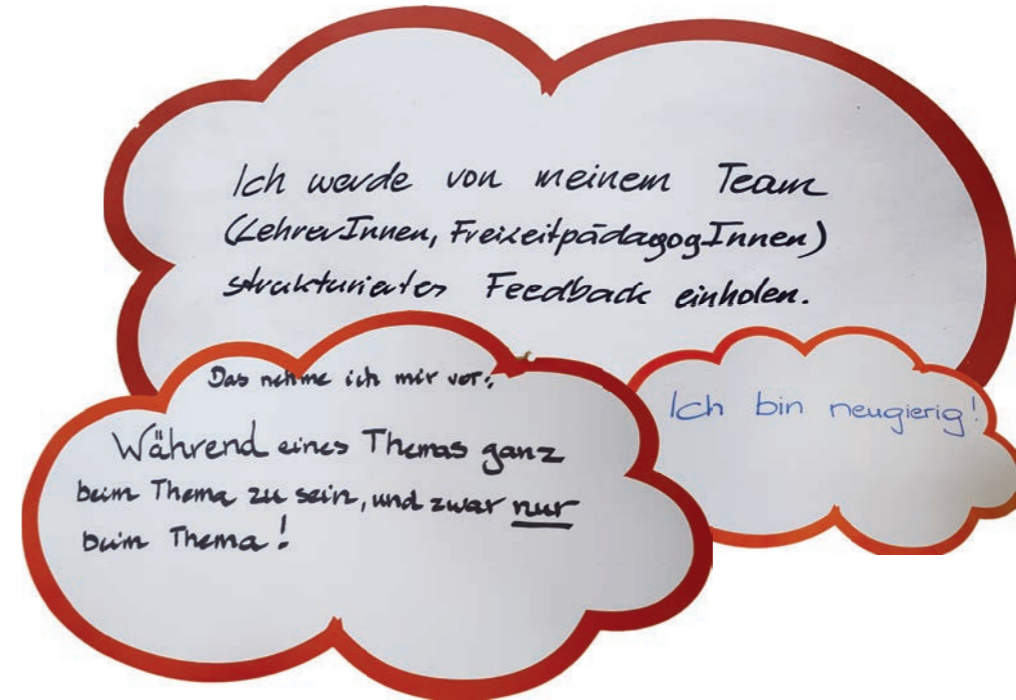 Ich werde von meinem Team
(LehrerInnen, FreizeitpädagogInnen)
strukturiertes Feedback einholen.
Das nehme ich mir vor:
Während eines Themas ganz
beim Thema zu sein, und zwar nur
beim Thema!
Ich bin neugierig!